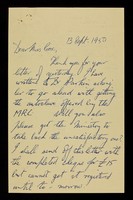 13 Sept. 1953
Dear Miss Rose,
Thank you for your
letter of yesterday. I have
written to Dr Durkin asking
how to go about with getting
the instructions offered by the
MRC. Will you also
please get the Ministry to
take back the unsatisfactory one.
I shall send off this letter with
the completed cheque for £15
but cannot get it registered
until to-morrow.